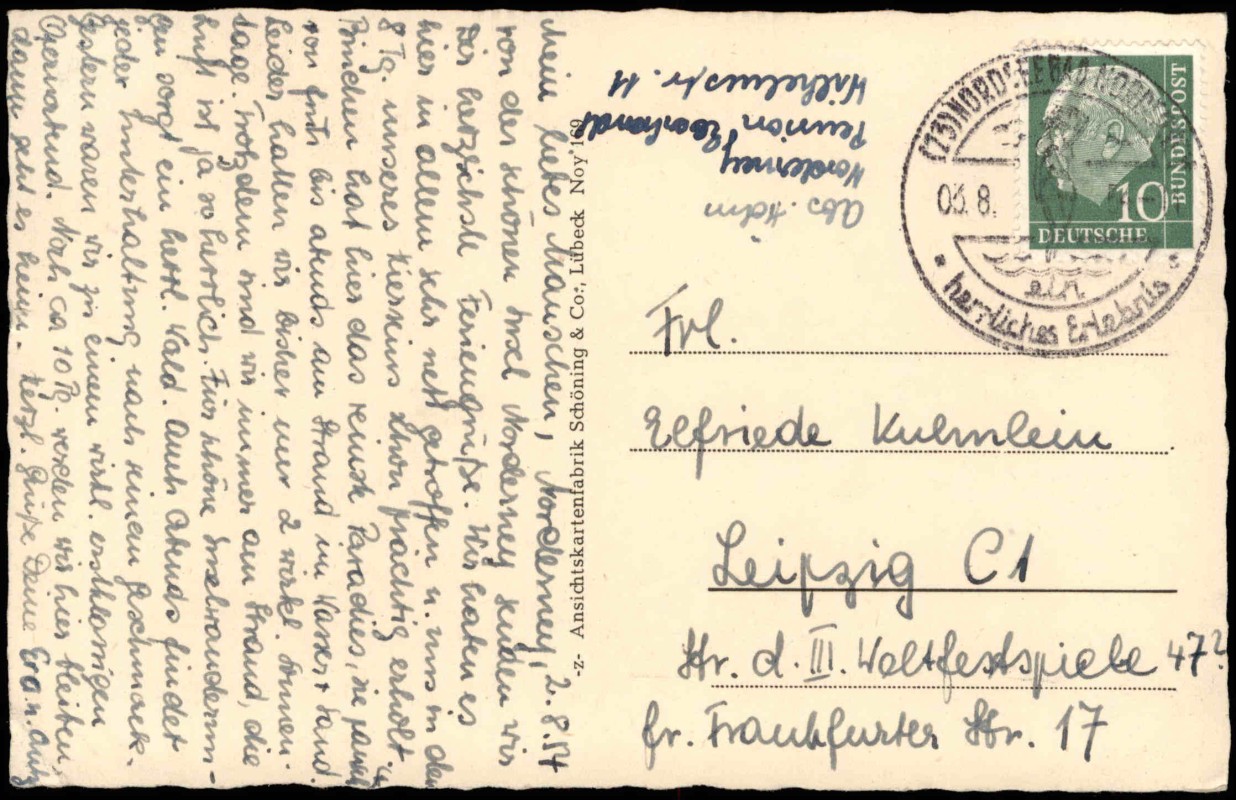 Mein liebes Mäuschen, Norderney, 2.8.54
von der schönen Insel Norderney senden wir
Dir herzlichste Feriengrüße. Wir haben es
hier in allem sehr nett getroffen u. uns in den
8 Tg. unseres Hierseins schon prächtig erholt.
hat hier das reinste Paradies, sie
von früh bis abends am Strand im Wasser + Sand.
Leider hatten wir bisher nur 2 wirkl. Sonnen-
tage. Trotzdem sind wir immer am Strand, die
Luft ist ja so herrlich. Für schöne Inselwanderun-
gen sorgt ein herrl. Wald. Auch Abends findet
jeder Unterhaltung nach seinem Geschmack.
Gestern waren wir zu einem wirkl. erstklassigen
Opernabend. Noch ca 10 Tg. werden wir hier bleiben,
dann geht es heim. Herzl. Grüße Deine
-z- Ansichtskartenfabrik Schöning & Co:, Lübeck Noy 169
Abs.
Norderney
Pension Seestrand
Wilhelmstr. 11
(23) NORDSEEBAD NORDERNEY
03.8.
ein
herrliches Erlebnis
10
DEUTSCHE
BUNDESPOST
Frl.
Elfriede Kulmlein
Leipzig C1
Str. d. III. Weltfestspiele 47
fr. Frankfurter Str. 17